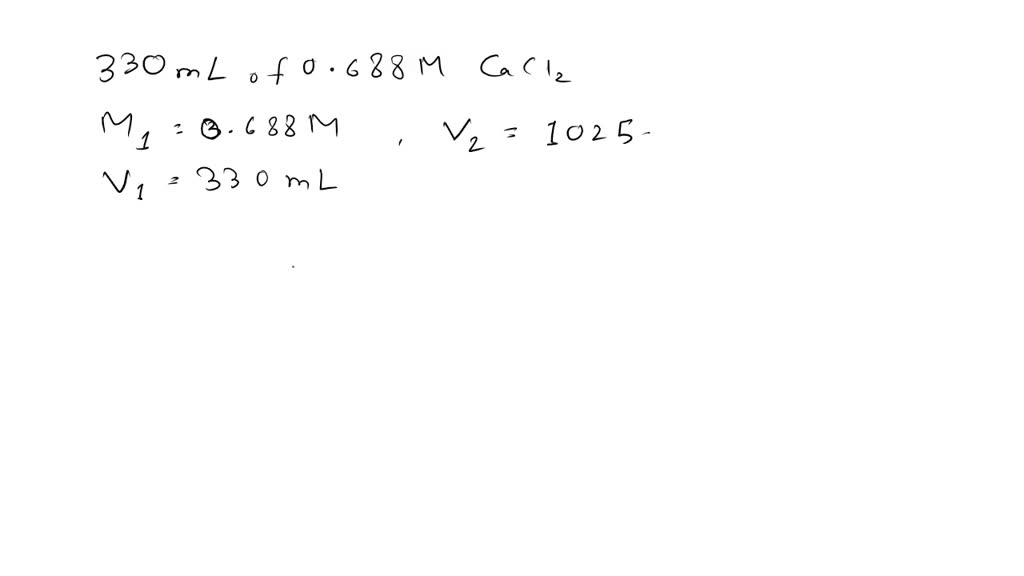 330 mL of 0.688 M CaCl₂
M₁ = 0.688 M , V₂ = 1025
V₁ = 330 mL